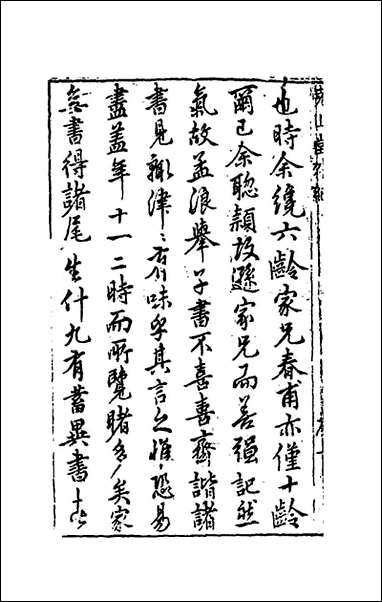 也時余纔六齡家兄春甫亦僅十齡
爾已余聰穎故遜家兄而善强記然
氣故孟浪舉子書不喜喜齊諧諸
書見輙津〻有味乎其言之惟〻恐易
盡盖年十一二時而所覽睹多矣家
無書得諸尾生什九有蓄異書者